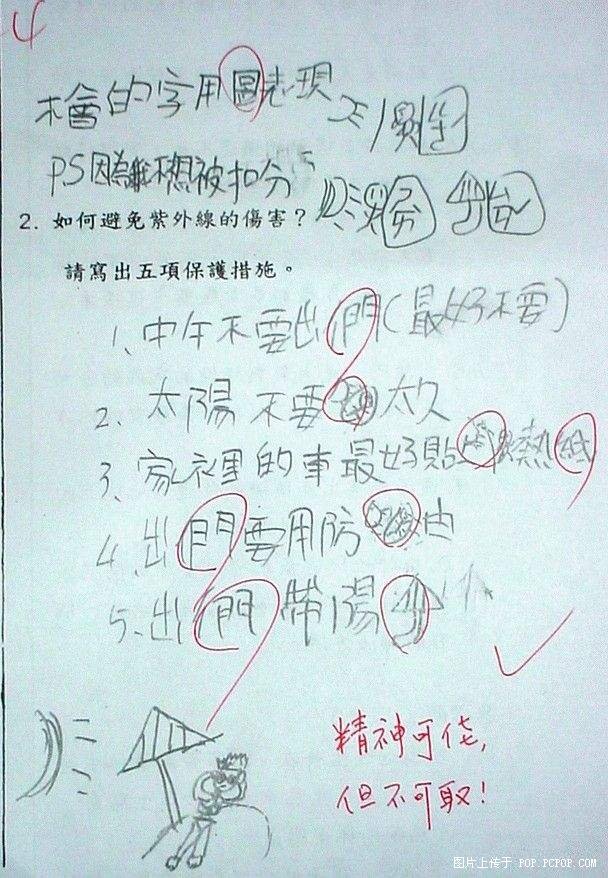 -4
不會的字用圖表現
PS因為不想被扣分
2. 如何避免紫外線的傷害？
請寫出五項保護措施。
1、中午不要出門(最好不要)
2、太陽不要太久
3、家裡的車最好貼隔熱紙
4、出門要用防油
5、出門帶陽
精神可佳,
但不可取!
图片上传于·POP.PCPOP.COM